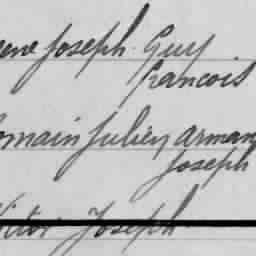 ene Joseph Guy
francois
omain Julien arman
Joseph
Victor Joseph